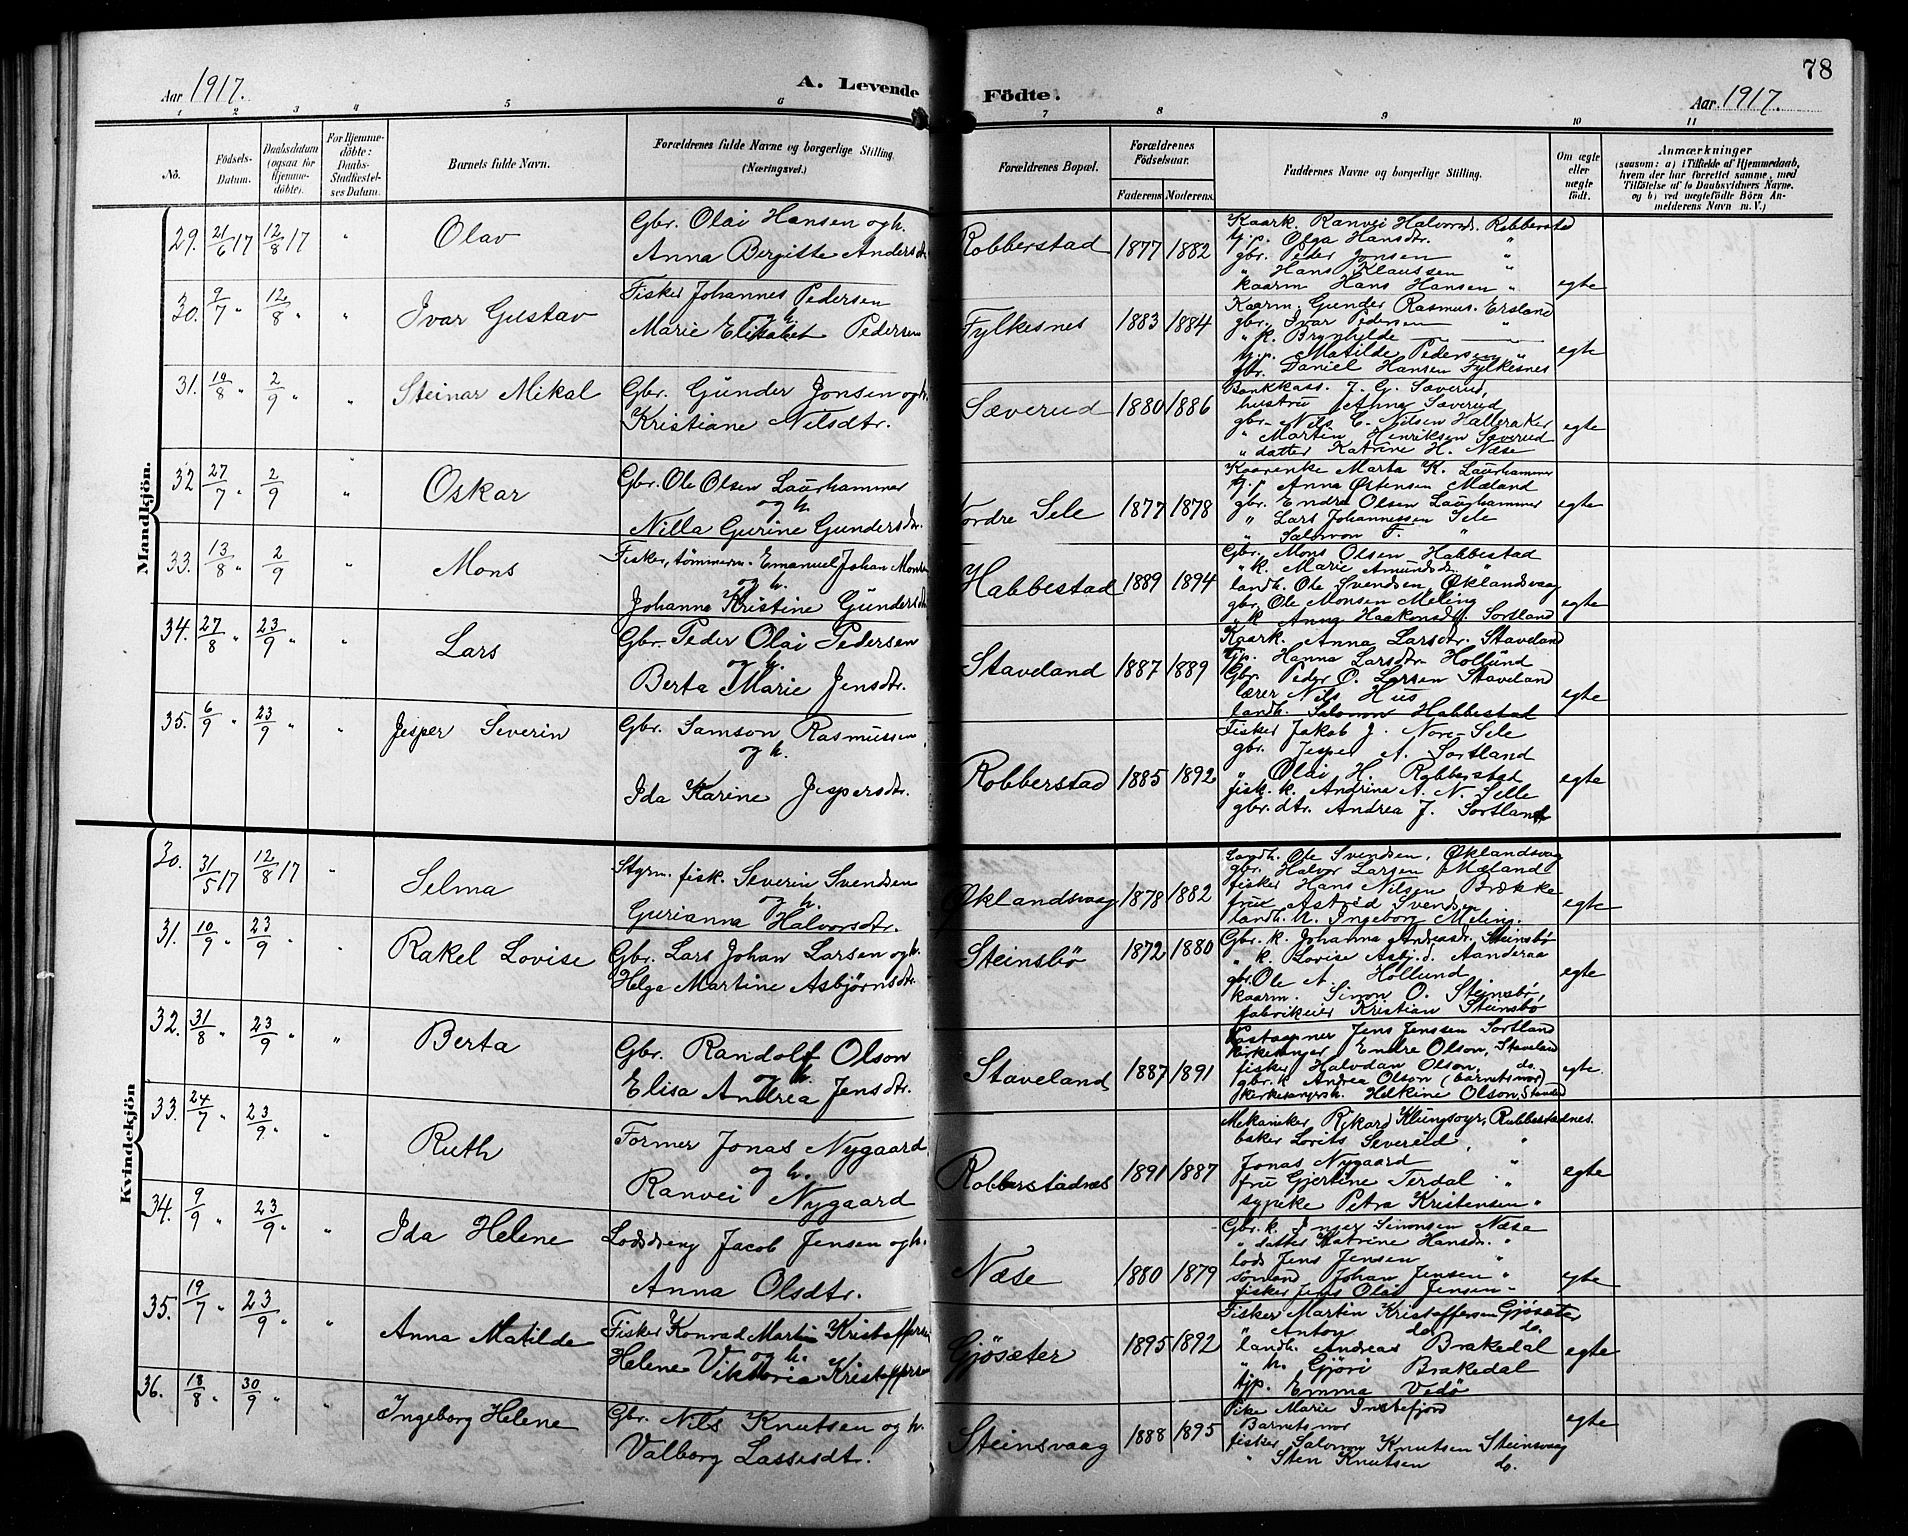 78
Aar 1917.
A. Levende Födte.
Aar 1917.
1 2 3 4 5 6 7 8 9 10 11
No.
Födsels-Datum.
Daabsdatum (ogsaa for Hjemmedöbte).
For Hjemmedöbte: Daabs-Stadfæstelses Datum.
Barnets fulde Navn.
Forældrenes fulde Navne og borgerlige Stilling. (Næringsvei.)
Forældrenes Bopæl.
Forældrenes Födselsaar.
Faderens. Moderens.
Faddernes Navne og borgerlige Stilling.
Om ægte eller uægte födt.
Anmærkninger
(saasom: a) i Tilfælde af Hjemmedaab, hvem der har forrettet samme, med Tilföielse af to Daabsvidners Navne. og b) ved uægtefödte Börn Anmelderens Navn m. V.)
Mandkjön.
29. 21/6 17 12/8 17 " Olav
Gbr. Olai Hansen og h.
Anna Bergitte Andersdtr.
Robberstad 1877 1882
Kaark. Ranvei Halvorsd. Robberstad
tj.p. Olga Hansdtr. "
gbr. Peder Jonsen "
" Hans Klaussen "
kaarm Hans Hansen "
egte
30. 9/7 " 12/8 " " Ivar Gustav
Fisker Johannes Pedersen
og h.
Marie Elisabet Pedersen
Fylkesnes 1883 1884
Kaarm. Gunder Rasmus. Ersland
gbr. Ivar Pedersen "
" k. Brynhilde
tj.p. Matilde Pedersen "
gbr. Daniel Hansen Fylkesnes
egte
31. 19/8 " 2/9 " " Steinar Mikal
Gbr. Gunder Jonsen og h.
Kristiane Nilsdtr.
Sæverud 1880 1886
Bankkass. J. G. Sæverud,
hustru Anna Sæverud
gbr. Nils C. Nilsen Halleraker
" Martin Henriksen Sæverud
" datter Katrine H. Næse
egte
32 27/7 " 2/9 " Oskar
Gbr. Ole Olsen Laurhammer
og h.
Nilla Gurine Gundersdtr.
Nordre Sele 1877 1878
Kaarenke Marta K. Laurhammer
tj.p Anna Østensen Mæland
gbr. Endre Olsen Laurhammer
" Lars Johannessen Sele
" Salomon T. "
egte
33. 13/8 " 2/9 " Mons
Fisker, tømmerm. Emanuel Johan Monsen
og h.
Johanna Kristine Gundersdtr.
Habbestad 1889 1894
Gbr. Mons Olsen Habbestad
" k. Marie Amundsdr. "
landh. Ole Svendsen, Øklandsvaag
gbr. Ole Monsen Meling
" k. Anna Haakonsdtr. Sortland
egte
34. 27/8 " 23/9 " " Lars
Gbr. Peder Olai Pedersen
og h.
Berta Marie Jensdtr.
Staveland 1887 1889
Kaark. Anna Larsdtr. Staveland
tjp. Hanna Larsdtr. Hollund
Gbr. Peder O. Larsen Staveland
lærer Nils Hus
landh. Salomon Habbestad
egte
35. 6/9 " 23/9 " " Jesper Severin
Gbr. Samson Rasmussen
og h.
Ida Karine Jespersdtr.
Robberstad 1885 1892
Fisker Jakob J. Nore-Sele
gbr. Jesper A. Sortland
" Olai H. Robberstad
fisk. k. Andrine A. N. Selle
gbr. dtr. Andrea J. Sortland
egte
Kvindekjön
30. 31/5 17 12/8 17 " Selma
Styrm. fisk. Severin Svendsen
og h.
Gurianna Halvorsdtr.
Øklandsvaag 1878 1882
Landh. Ole Svendsen, Øklandsvaag
gbr. Halvor Larsen Mæland
fisker Hans Nilsen Brække
frue Astrid Svendsen
landh. h. Ingeborg Meling.
egte
31. 10/9 " 23/9 " " Rakel Lovise
Gbr. Lars Johan Larsen og h.
Helga Martine Asbjørnsdtr.
Steinsbö 1872 1880
Gbr. k. Johanna Andreasdr. Steinsbø
" k. Lovise Asbj.d. Aanderaa
gbr. Ole A. Hollund
kaarm. Simon O. Steinsbø,
fabrikeier Kristian Steinsbø
egte
32. 31/8 " 23/9 " " Berta
Gbr. Randolf Olson
og h.
Elisa Andrea Jensdtr.
Staveland 1887 1891
Postaapner Jens Jenssen Sortland
Kirkesanger Endre Olson, Staveland
fisker Halvdan Olson, do.
gbr. k. Andrea Olson (barnets mor)
kirkesangersk. Helkine Olson, Staveland
egte.
33. 24/7 " 23/9 " " Ruth
Former Jonas Nygaard
og h.
Ranvei Nygaard
Robberstadnes 1891 1887
Mekaniker Rikard Klungsøyr, Rubbestadnes.
baker Lorits Severeid, "
Jonas Nygaard "
fru Gjertine Terdal "
sypike Petra Kristensen "
egte
34. 9/9 " 23/9 " " Ida Helene
Lodsdreng Jacob Jensen og h.
Anna Olsdtr.
Næse 1880 1879
Gbr. k. Inger Simonsen Næse
" datter Katrine Hansdr. "
lods Jens Jensen "
sømand Johan Jensen "
fisker Jens Olai Jensen "
egte
35. 19/7 " 23/9 " " Anna Matilde
Fisker Konrad Martin Kristoffersen
og h.
Helene Viktoria Kristoffersen
Gjøsæter 1895 1892
Fisker Martin Kristoffersen Gjøsæter
" Anton do. do.
landh. Andreas Brakedal
" h. Gjøri Brakedal
tjp. Emma Vedø
egte
36. 18/8 " 30/9 " " Ingeborg Helene
Gbr. Nils Knutsen og h.
Valborg Lassesdtr.
Steinsvaag 1888 1895
Pike Marie Innstefjord
Barnets mor
fisker Salomon Knutsen Steinsvaag
" Sten Knutsen do.
egte